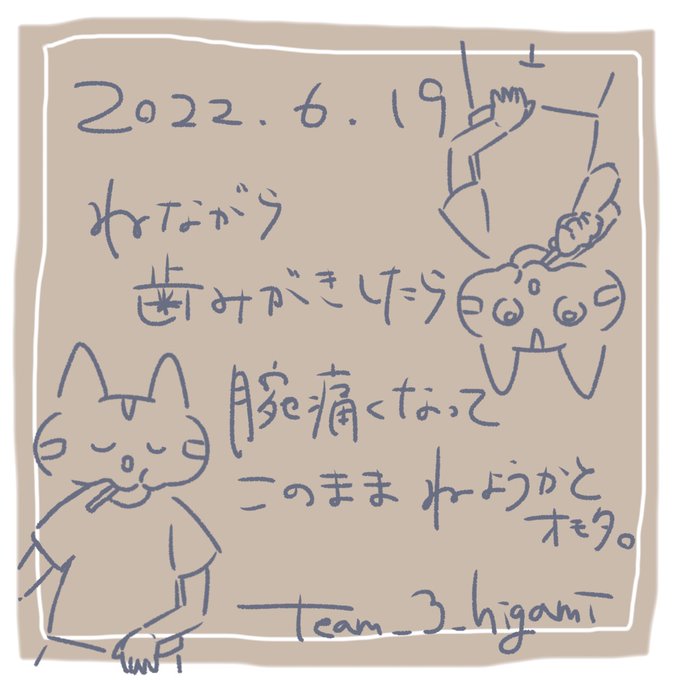 2022.6.19
ねながら
歯みがきしたら
腕痛くなって
このままねようかと
オモタ。
Team_3_higami